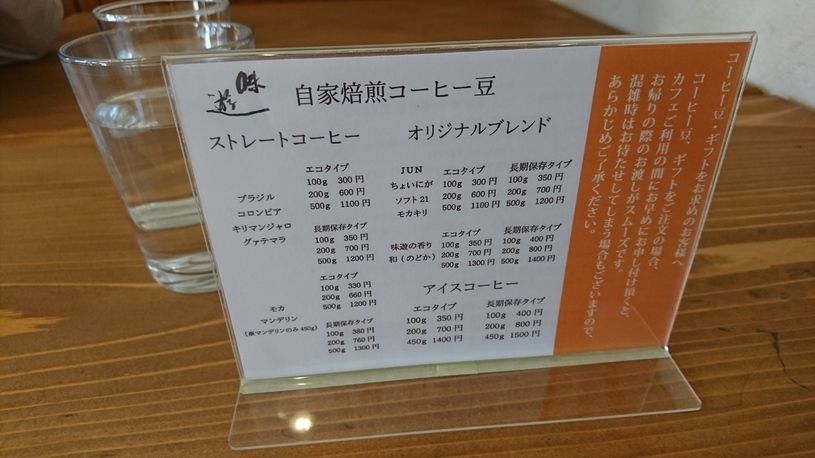 味遊
自家焙煎コーヒー豆
ストレートコーヒー
エコタイプ
100g 300円
200g 600円
500g 1100円
ブラジル
コロンビア
キリマンジャロ
グァテマラ
長期保存タイプ
100g 350円
200g 700円
500g 1200円
エコタイプ
100g 330円
200g 660円
500g 1200円
モカ
マンデリン
(※マンデリンのみ450g)
長期保存タイプ
100g 380円
200g 760円
500g 1300円
オリジナルブレンド
JUN
ちょいにが
ソフト21
モカキリ
エコタイプ
100g 300円
200g 600円
500g 1100円
長期保存タイプ
100g 350円
200g 700円
500g 1200円
味遊の香り
和(のどか)
エコタイプ
100g 350円
200g 700円
500g 1300円
長期保存タイプ
100g 400円
200g 800円
500g 1400円
アイスコーヒー
エコタイプ
100g 350円
200g 700円
450g 1400円
長期保存タイプ
100g 400円
200g 800円
450g 1500円
コーヒー豆・ギフトをお求めのお客様へ
コーヒー豆、ギフトをご注文の場合、
カフェご利用の間にお早めにお申し付け頂くと、
お帰りの際のお渡しがスムーズです。
混雑時はお待たせしてしまう場合もございますので、
あらかじめご了承ください。